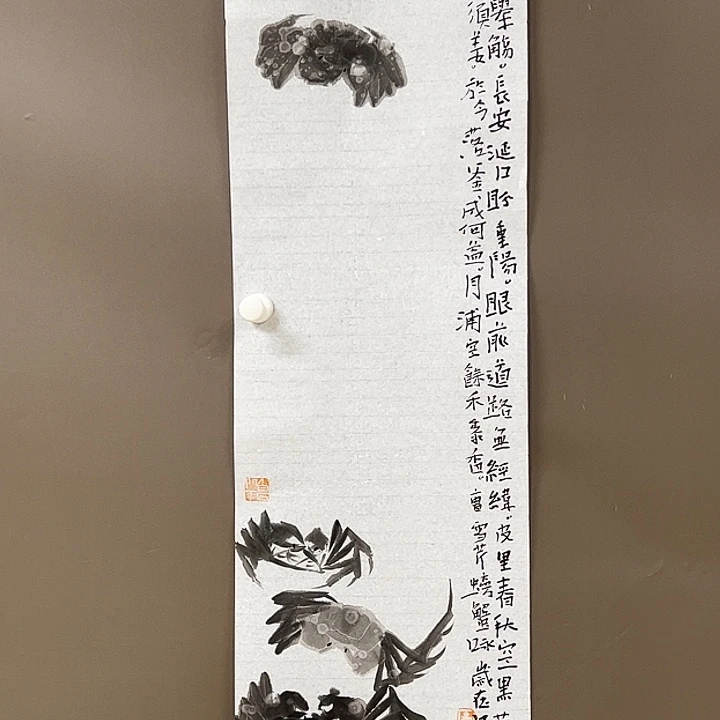 舉觴。長安涎口盼重陽。眼前道路無經緯。皮里春秋空黑
須姜。於今落釜成何益。月浦空餘禾黍香。曹雪芹螃蟹咏歲在